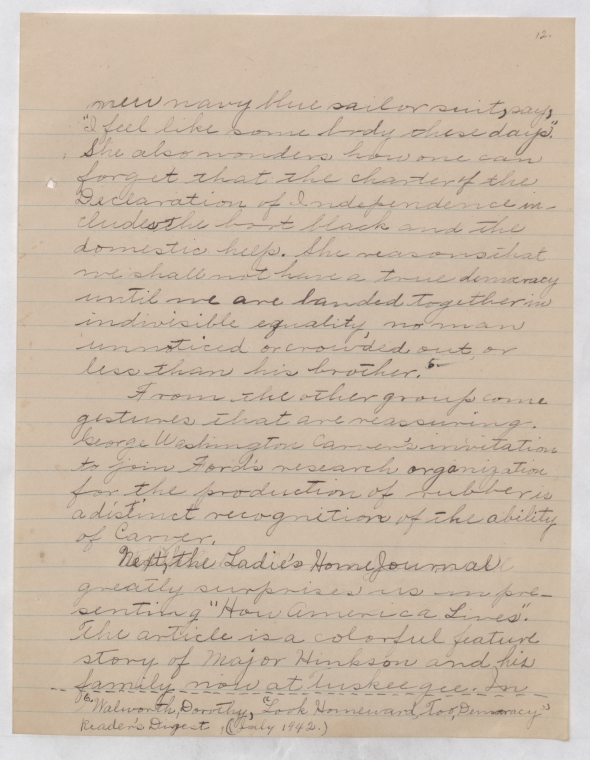 12.
new navy blue sailor suit, say,
"I feel like some body these days".
She also wonders how one can
forget that the charter of the
Declaration of Independence in-
cludes the boot black and the
domestic help. She reasons that
we shall not have a true democracy
until we are banded together in
indivisible equality, no man
unnoticed or crowded out, or
less than his brother. 5
From the other group come
gestures that are reassuring.
George Washington Carver's invitation
to join Ford's research organization
for the production of rubber is
a distinct recognition of the ability
of Carver.
Next, the Ladie's Home Journal
greatly surprises us in pre-
senting "How America Lives".
The article is a colorful feature
story of Major Hinkson and his
family now at Tuskeegee. In
Walworth, Dorothy, "Look Homeward, Too, Democracy"
Reader's Digest, (July 1942.)